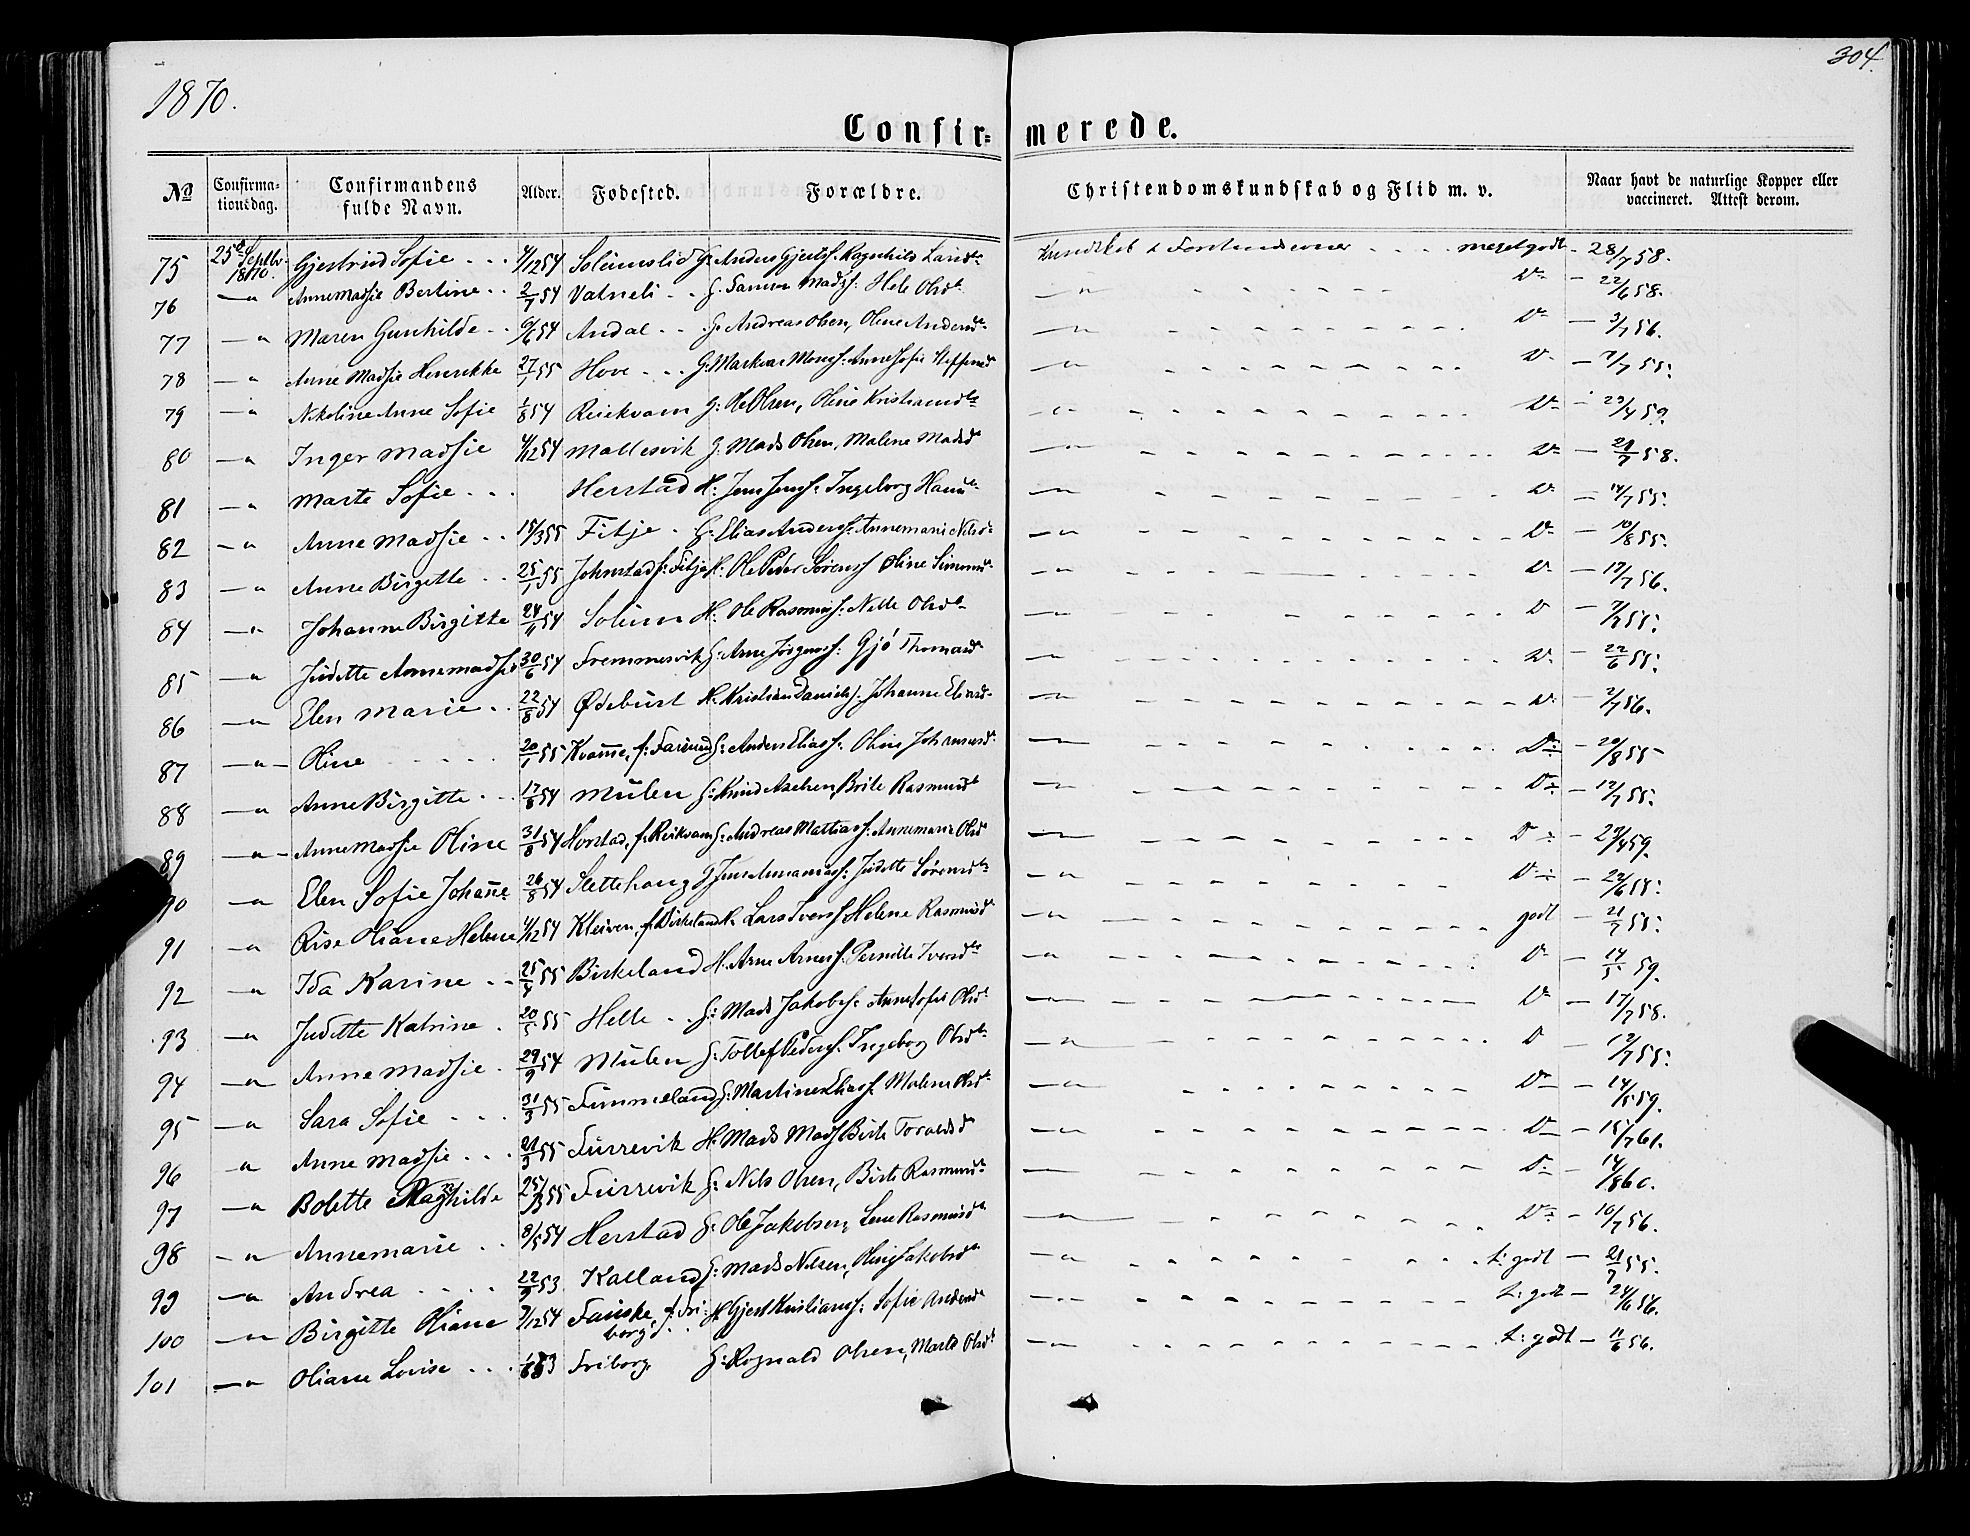 304.
1870.
Confir= merede.
No Confirma-tionsdag. Confirmandens fulde Navn. Alder. Fødested. Forældre. Christendomskundskab og Flid m. v. Naar havt de naturlige Kopper eller vaccineret. Attest derom.
75 25de Septbr 1870. Gjertrud Sofie 4/12 54 G: Anders Gjerts. Ragnhild Larsd. Kundskab & meget godt - 28/7 58.
76 -"- Annemadsie Bertine 2/7 54 Vatneli G. Mads: Hele Olsd. -"- Do - 22/6 58.
77 -"- Maren Gunhilde 9/6 54 Andal G. Andreas Olsen, Oline Andersd. -"- Do - 3/7 56.
78 -"- Anne Madsie Henrikke 27/1 55 Hove G. Markus Mons: Anne Sofie Steffensd -"- Do - 7/7 55.
79 -"- Nikoline Anne Sofie 1/8 54 Reiekvam G: Ole Olsen, Oline Kristiansd. -"- Do - 29/4 59.
80 -"- Inger Madsie 4/12 54 Mollesvik G: Mads Olsen, Malene Madsd -"- Do - 21/7 58.
81 -"- Marte Sofie Herstad H: Jens Jens: Ingeborg Hansd. -"- Do - 14/7 55.
82 -"- Anne Madsie 15/3 55 Fitje G: Elias Anders: Annemarie Nilsd. -"- Do - 10/8 55.
83 -"- Anne Birgitte 25/1 55 Johnstad f: Fitje H: Ole Peder Sørens. Oline Simonsd. -"- Do - 17/7 56.
84 -"- Johanne Birgitte 24/11 54 Soleim H: Ole Rasmus: Nille Olsd. -"- D - 7/7 55.
85 -"- Judette Annemadsie 30/6 54 Fremmersvik G: Arne Jørgens: Gjø Thomasd -"- Do - 22/6 55.
86 -"- Elen Marie 22/8 54 Ødeburt H: Kristian Daniels: Johanne Eliasd. -"- Do - 2/7 56.
87 -"- Oline 20/1 55 Kvamme, f: G: Anders Elias: Oline Johannesd. -"- Do - 20/8 55
88 -"- Anne Birgitte 17/8 54 Mulen G: Knud Askelsen, Brite Rasmusd -"- Do - 12/7 55.
89 -"- Annemadsie Oline 31/8 54 Horstad, f. Reikvam G: Andreas Mattias: Annemarie Olsd -"- Do - 29/4 59.
90 -"- Elen Sofie Johanne 26/8 54 Slettehaug G Jens Ananias: Judette Sørensd. -"- Do - 22/6 58.
91 -"- Rise Oliane Helene 4/12 54 Kleiven, f. Birkeland H. Lars Ivers. Helene Rasmusd -"- godt - 21/7 55.
92 -"- Ida Karine 25/4 55 Birkeland H. Arne Arnes. Pernille Iversd. -"- Do - 14/5 59.
93 -"- Judette Katrine 20/5 55 Helle G: Mads Jakobs: Anne Sofie Olsd. -"- Do - 17/7 58.
94 -"- Anne Madsie 29/9 54 Mulen G: Tollef Peders. Ingeborg Olsd. -"- D - 12/7 55.
95 -"- Sara Sofie 31/3 55 Timmeland G. Martinus Elias: Malene Olsd. -"- Do - 14/5 59.
96 -"- Anne Madsie 21/3 55 Furrevik H: Mads Mads Birte Toraldsd -"- Do - 15/7 61.
97 -"- Bolette Raghilde 25/3 55 Furrevik G: Nils Olsen, Birte Rasmusd. -"- Do - 14/8 60.
98 -"- Annemarie 8/5 54 Herstad G: Ole Jakobsen, Lene Rasmusd. -"- Do - 10/7 56.
99 -"- Andrea 22/9 53 Kalland G: Mads Nilsen, Oline Jakobsd -"- t: godt - 21/7 55.
100 -"- Birgitte Oliane 7/12 54 Fauske, f. Fri-borg H. Gjert Kristians: Sofie Andersd. -"- t: godt - 24/6 56.
101 -"- Oliane Lovise 53 Friborg G: Rognald Olsen, Marte Olsd -"- t: godt - 11/6 56.